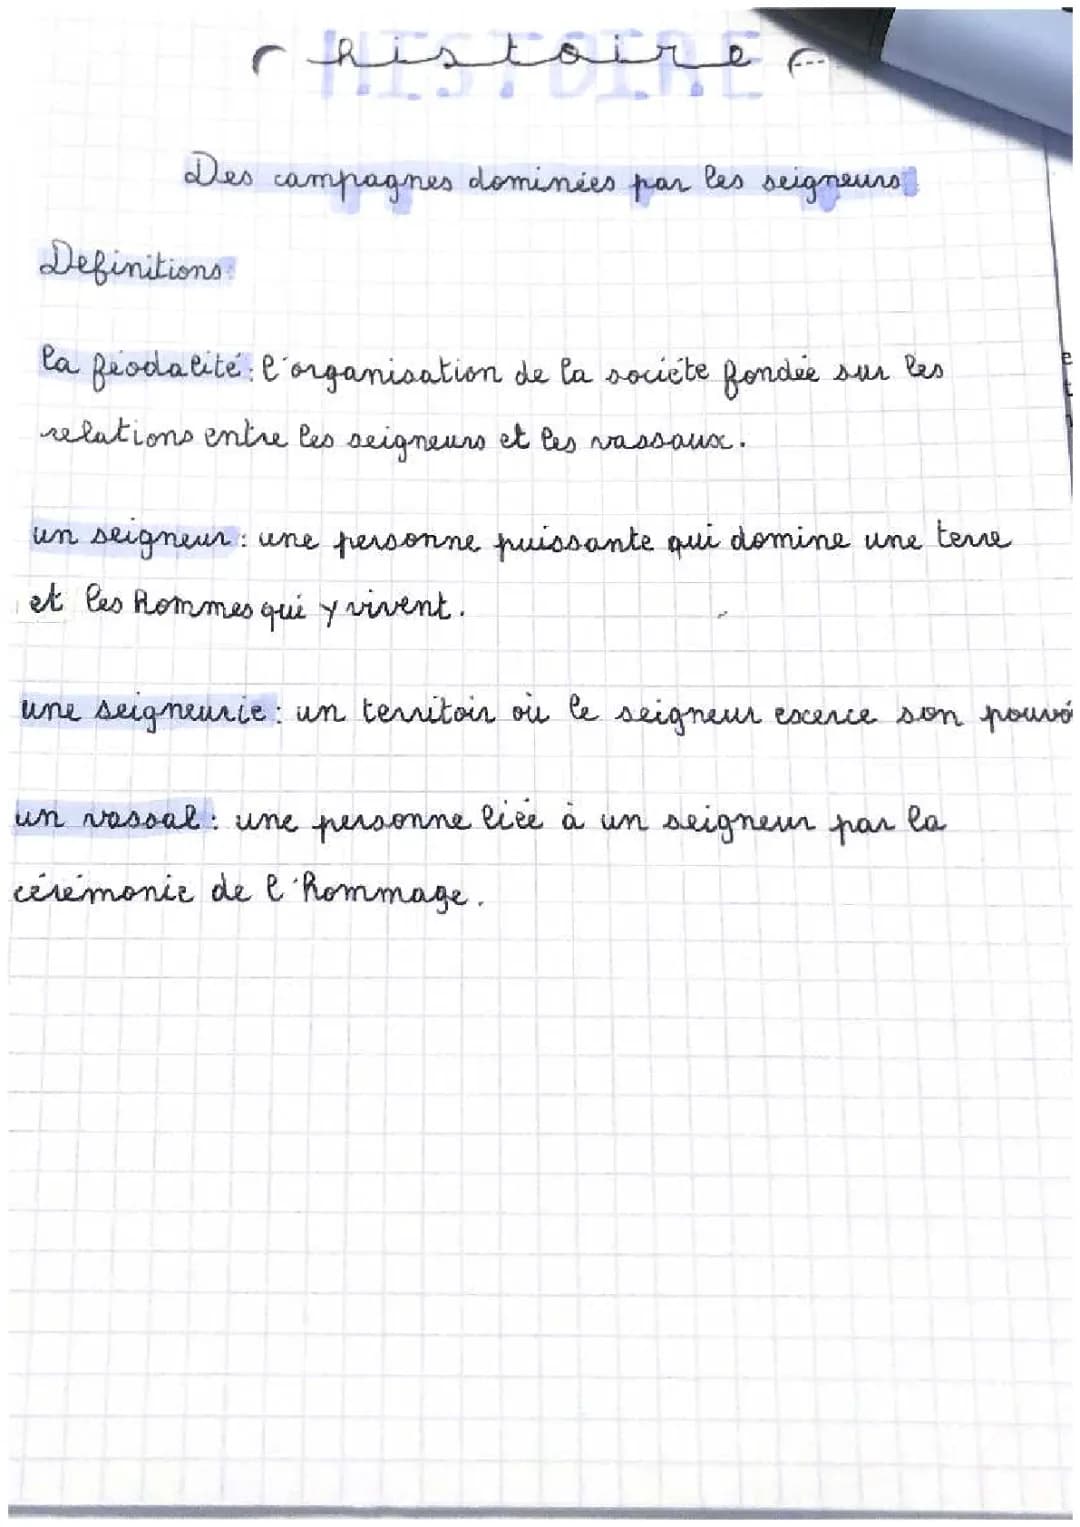 histoire
HISTOIRE
Des campagnes dominées par les seigneurs
Definitions:
la féodalité: l'organisation de la sociéte fondée sur les
relations entre les seigneurs et les vassaux.
un seigneur: une personne puissante qui domine une terre
et les hommes qui y vivent.
une seigneurie: un territoir où le seigneur excerce son pouvo
un vassal: une personne liée à un seigneur par la
cérémonie de l'hommage.